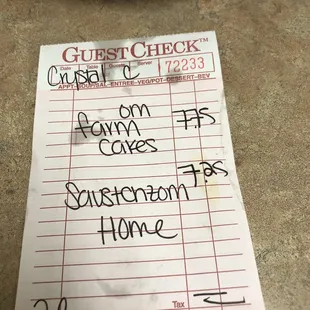 GUEST CHECK™
Date Table Guests Server
Crystal C 72233
APPT-SOUP/SAL-ENTREE-VEG/POT-DESSERT-BEV
om
farm 7.75
cakes
7.25
Saustchzom
Home
Tax